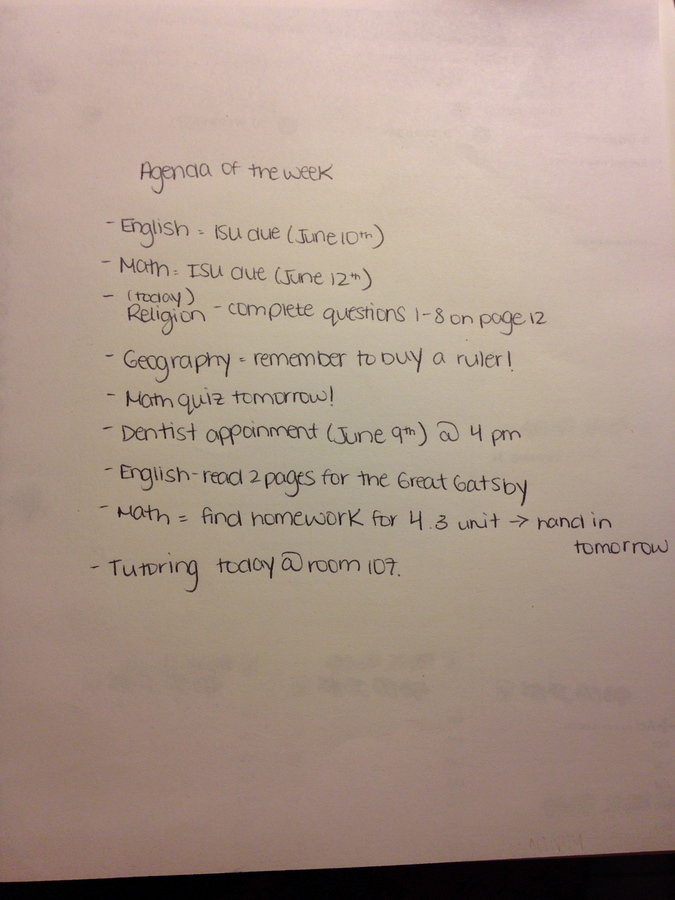 Agenda of the week
- English = ISU due (June 10th)
- Math = ISU due (June 12th)
- (today)
Religion - complete questions 1-8 on page 12
- Geography = remember to buy a ruler!
- Math quiz tomorrow!
- Dentist appoinment (June 9th) @ 4 pm
- English - read 2 pages for the Great Gatsby
- Math = find homework for 4.3 unit → hand in
tomorrow
- Tutoring today @ room 107.